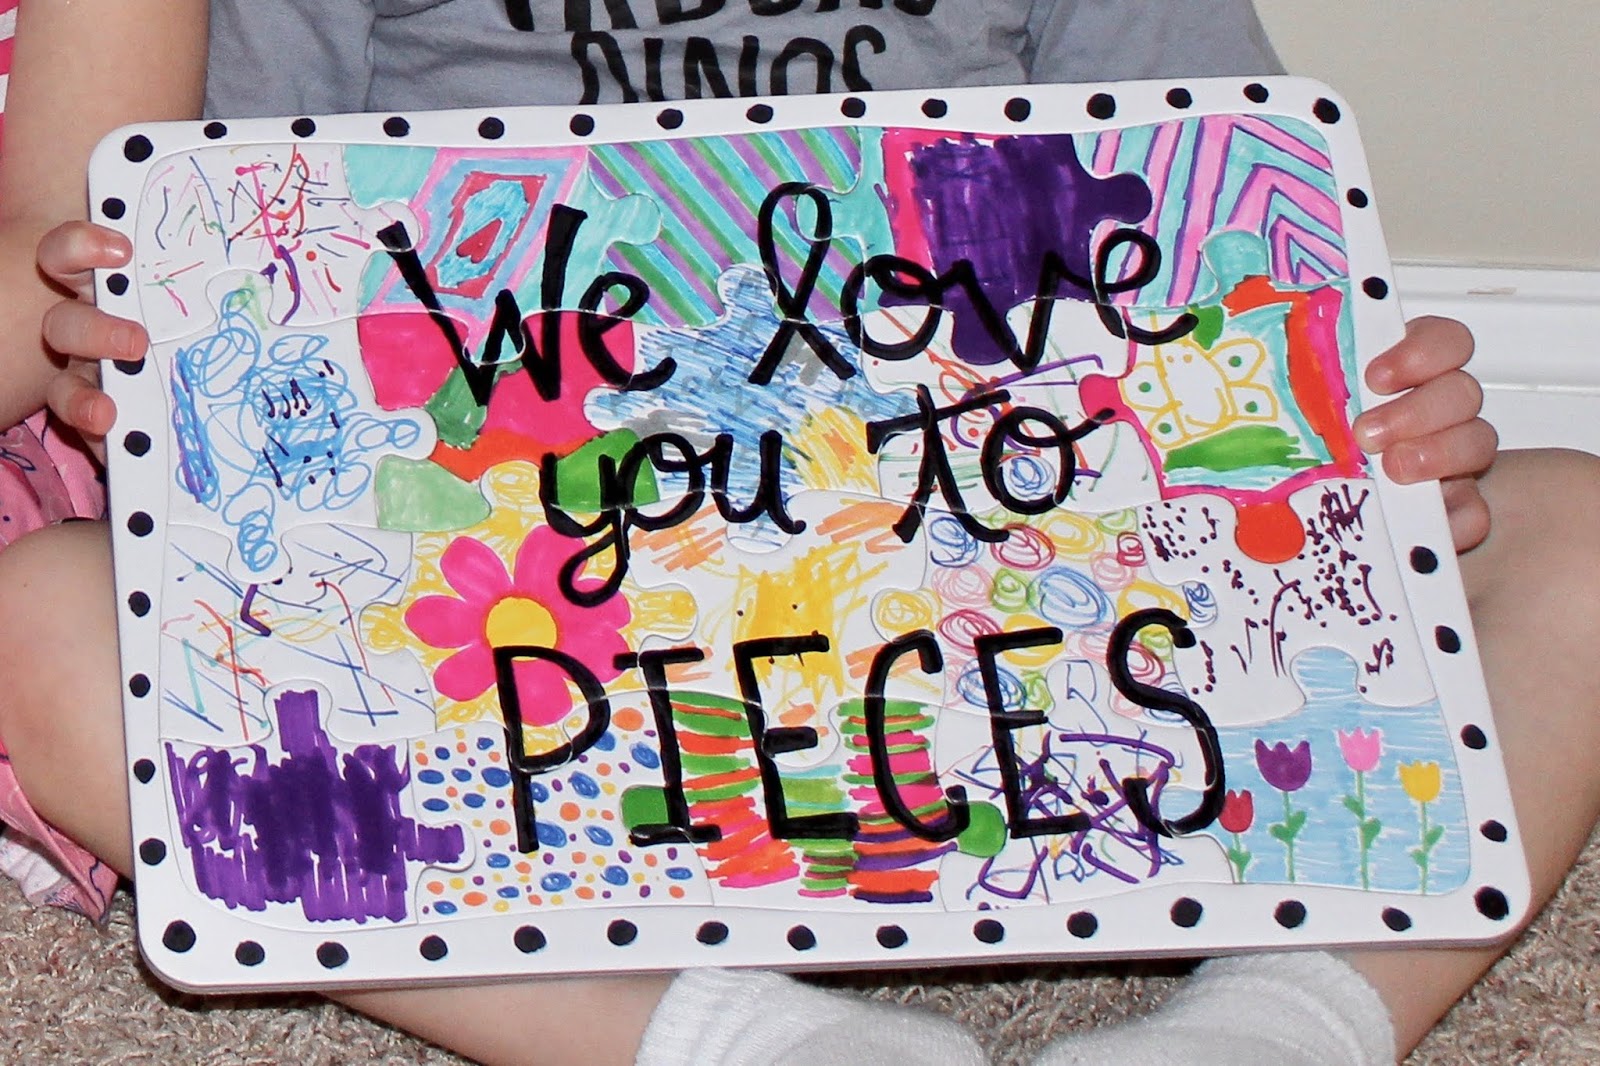 DINOS
We love
you to
PIECES